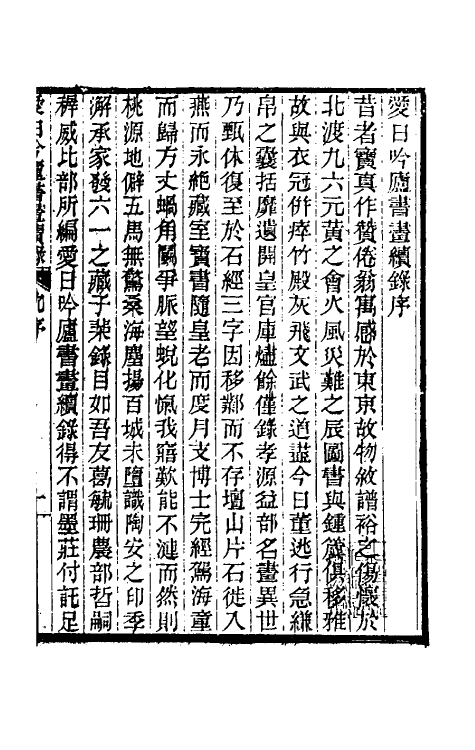 愛日吟廬書畫續錄序
昔者寶真作贊倦翁寓感於東京故物敘譜裕之傷懷於
北渡九六元黃之會火風災難之辰圖書與鍾簴俱移雅
故與衣冠倂瘁竹殿灰飛文武之道盡今日董逃行急縑
帛之囊括靡遺開皇官庫燼餘僅錄孝源益部名畫異世
乃甄休復至於石經三字因移鄴而不存壇山片石徙入
燕而永絶藏室寶書隨皇老而度月支博士完經駕海童
而歸方丈蝸角鬭爭脈望蛻化愾我寤歎能不漣而然則
桃源地僻五馬無驚桑海塵揚百城未墮識陶安之印季
澥承家發六一之藏子棐錄目如吾友葛毓珊農部哲嗣
稺威比部所編愛日吟廬書畫續錄得不謂墨莊付託足
愛日吟廬書畫續錄 序 一